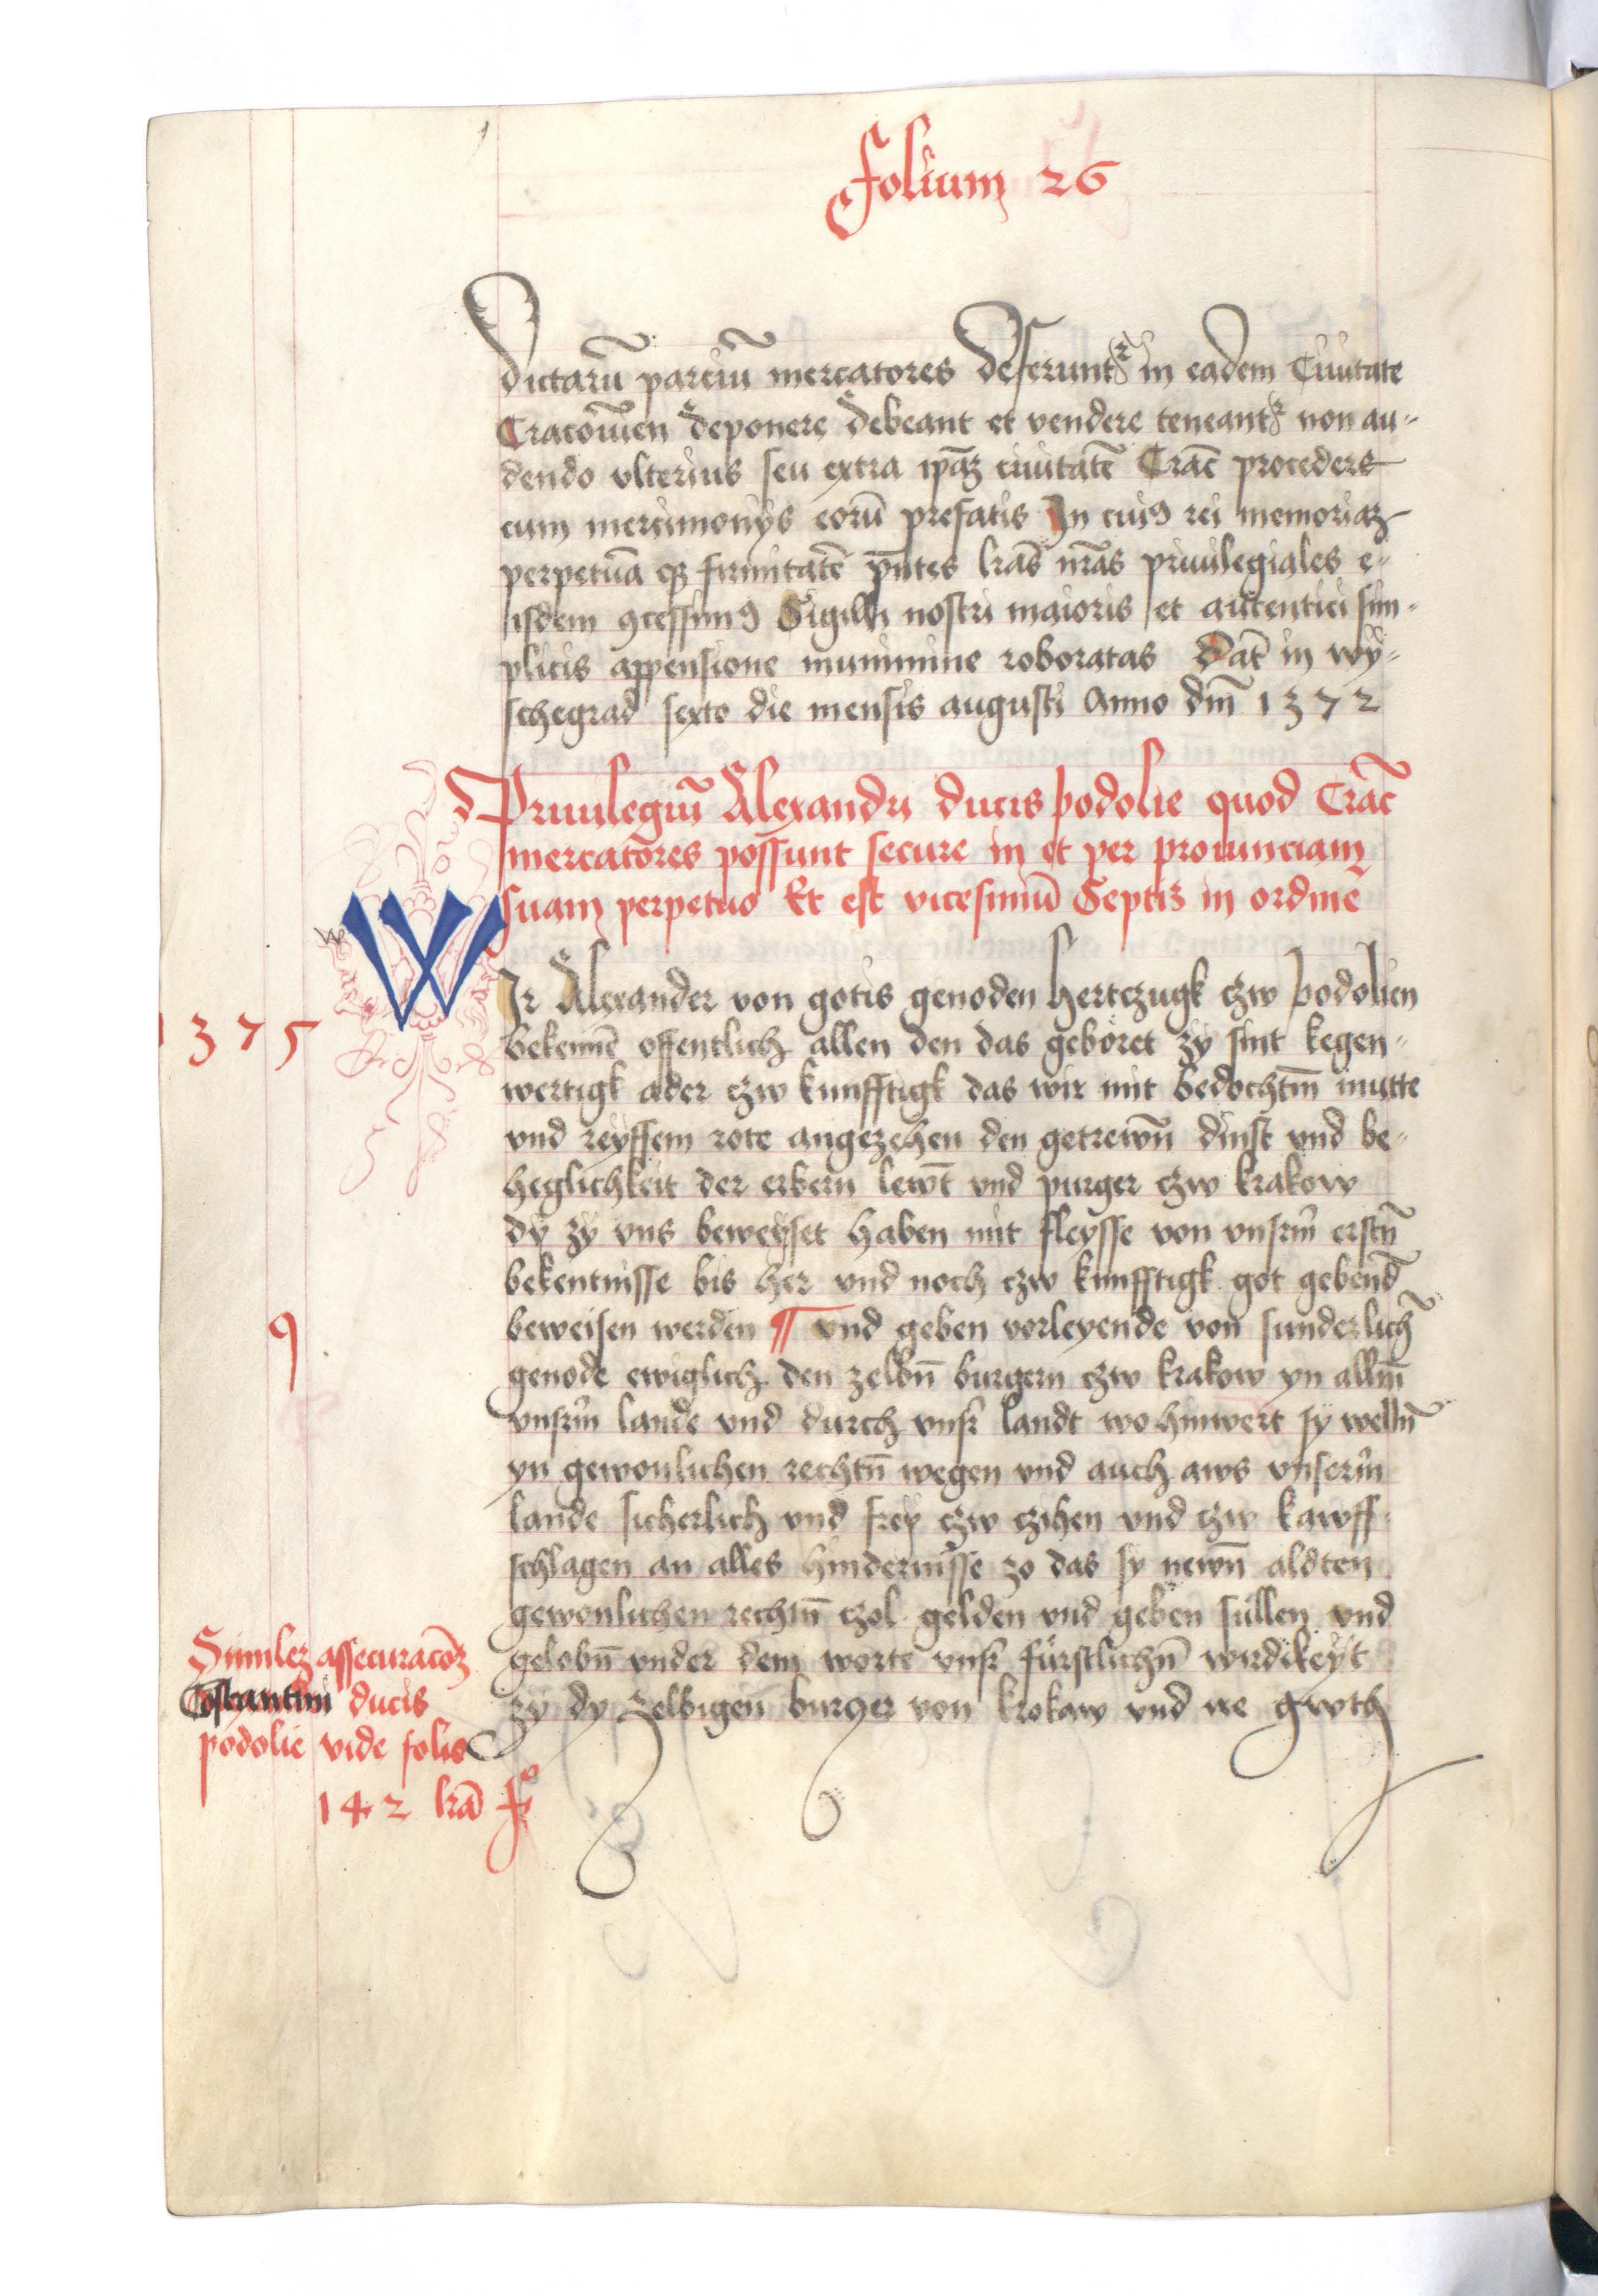 folium 26
dictarū parciū mercatores deferuntr in eadem Ciuitate
Cracouien deponere debeant et vendere teneantr non au-
dendo vlterius seu extra ip̄az ciuitatē Crac̄ procedere
cum mercimonijs eorū prefatis In cui9 rei memoriaz
perpetuā qz firmitatē pn̄tes lrās nrās priuilegiales e-
isdem 9cessim9 Sigilli nostri maioris et autentici sim-
plicis appensione munimine roboratas Dat̄ in wy-
schegrad sexto die mensis augusti Anno dm̄ 1372
Priuilegiū Alexandri ducis podolie quod Crac̄
mercatores possunt secure in et per prouinciam
suam perpetuo Et est vicesimū Septiz in ordine
WIr Alexander von gotis genoden hertczugk czw podolien
1375
bekennē offentlich allen den das gehöret zy sint kegen-
wertigk ader czw kunfftigk das wir mit bedochtm̄ mutte
vnd reyffem rote angezehen den getrewn̄ dinst vnd be-
heglichkeit der erbern lewt̄ vnd purger czw krakow
dy zy vns beweyset haben mit fleysse von vnsrm̄ erstn̄
bekentnisse bis her vnd noch czw kunfftigk got gebend̄
9
beweisen werden ¶ vnd geben vorleyende von sunderlich̄
genode ewiglich den zelbn̄ burgern czw krakow yn allm̄
vnsrm̄ lande vnd durch vnsr landt wo hinwert sy welln̄
yn gewonlichen rechtn̄ wegen vnd auch aws vnserm̄
lande sicherlich vnd frey czw czihen vnd czw kawff-
schlagen an alles hindernisse zo das sy newn̄ aldten
gewonlichen rechtn̄ czol gelden vnd geben süllen vnd
gelobn̄ vnder dem worte vnsr fürstlichn̄ wirdikeyt
zy dy zelbigen burger von krokaw vnd ire gwth
Similez assecuracōz
Costantini ducis
podolie vide folio
142 lrā f